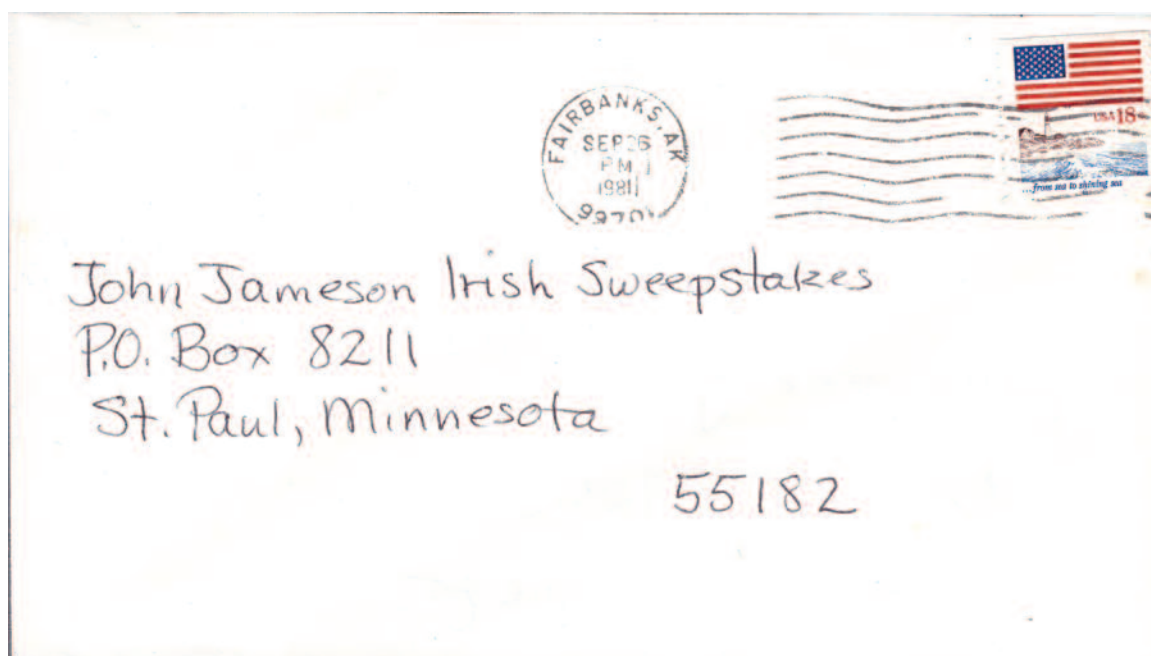 FAIRBANKS, AK
SEP 26
PM
1981
99701
USA 18c
...from sea to shining sea
John Jameson Irish Sweepstakes
P.O. Box 8211
St. Paul, Minnesota
55182